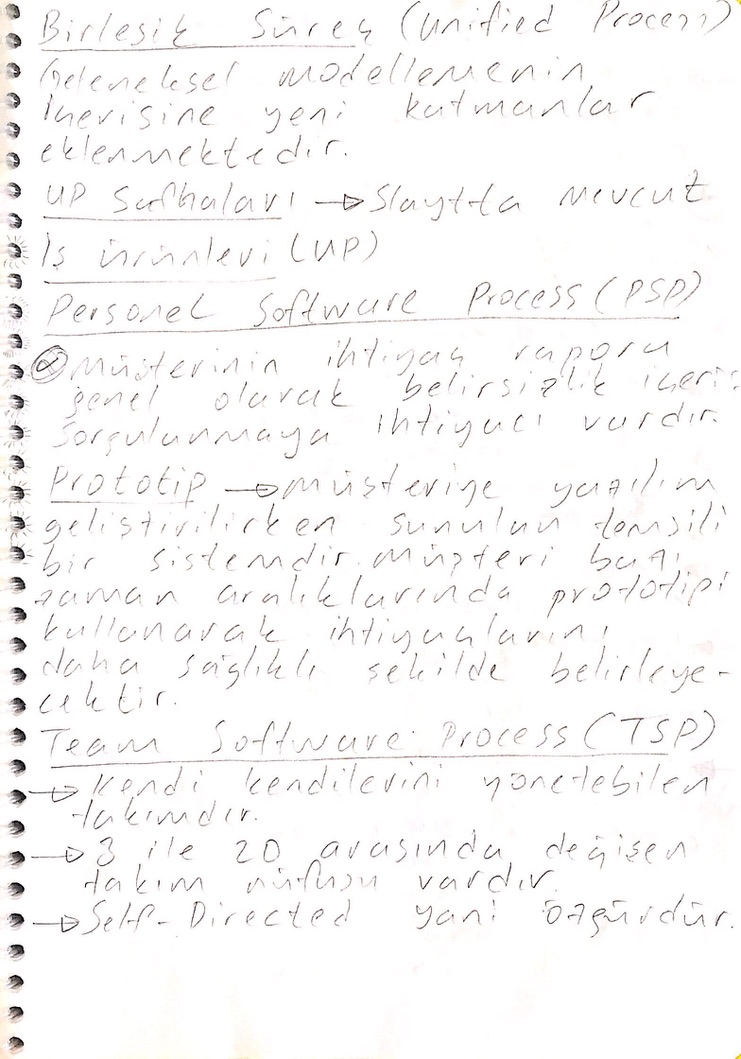 Birleşik Süreç (Unified Process)
Geleneksel modellemenin
içerisine yeni katmanlar
eklenmektedir.
UP Safhaları → Slaytta mevcut
İş ürünleri (UP)
Personel Software Process (PSP)
müşterinin ihtiyaç raporu
genel olarak belirsizlik içerir
sorgulunmaya ihtiyacı vardır.
Prototip → müşteriye yazılım
geliştirilirken sunulun temsili
bir sistemdir. müşteri bazı
zaman aralıklarında prototipi
kullanarak ihtiyaçlarını
daha sağlıklı şekilde belirleye-
cektir.
Team Software Process (TSP)
→ Kendi kendilerini yönetebilen
takımdır.
→ 3 ile 20 arasında değişen
takım nüfusu vardır.
→ Self-Directed yani özgürdür.